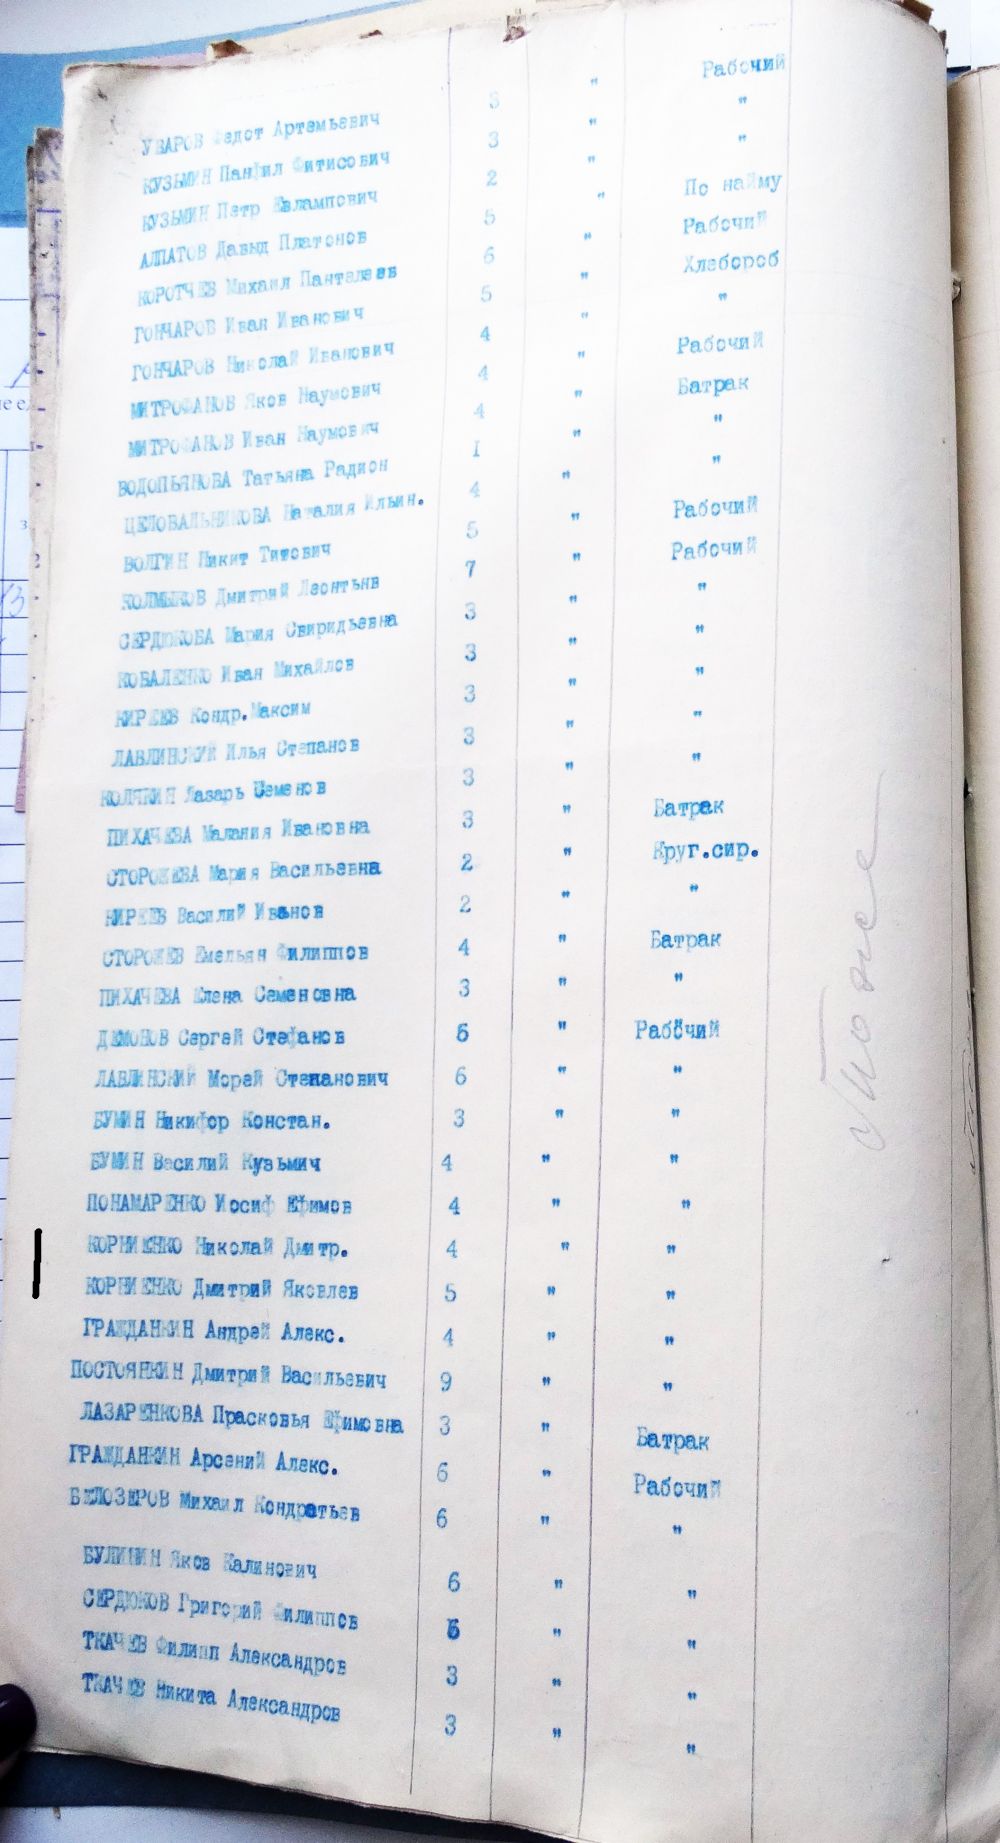 УВАРОВ Федот Артемьевич 3 " Рабочий
КУЗЬМИН Панфил Фитисович 3 " "
КУЗЬМИН Петр Евлампович 2 " "
АЛПАТОВ Давыд Платонов 5 " По найму
КОРОТЧЕВ Михаил Панталеев 6 " Рабочий
ГОНЧАРОВ Иван Иванович 5 " Хлебороб
ГОНЧАРОВ Николай Иванович 4 " "
МИТРОФАНОВ Яков Наумович 4 " Рабочий
МИТРОФАНОВ Иван Наумович 4 " Батрак
ВОДОПЬЯНОВА Татьяна Радион I " "
ЦЕЛОВАЛЬНИКОВА Наталия Ильин. 4 " "
ВОЛГИН Никит Титович 5 " Рабочий
КОЛМЫКОВ Дмитрий Леонтьив 7 " Рабочий
СЕРДЮКОВА Мария Свиридьевна 3 " "
КОВАЛЕНКО Иван Михайлов 3 " "
КИРЕЕВ Кондр.Максим 3 " "
ЛАВЛИНСКИЙ Илья Степанов 3 " "
КОЛЯКИН Лазарь Семенов 3 " "
ПИХАЧЕВА Малания Ивановна 3 " Батрак
СТОРОЖЕВА Мария Васильевна 2 " Круг.сир.
КИРЕЕВ Василий Иванов 2 " "
СТОРОЖЕВ Емельян Филиппов 4 " Батрак
ПИХАЧЕВА Елена Семеновна 3 " "
ДЕМОНОВ Сергей Стефанов 6 " Рабочий
ЛАВЛИНСКИЙ Морей Степанович 6 " "
БУМИН Никифор Констан. 3 " "
БУМИН Василий Кузьмич 4 " "
ПОНАМАРЕНКО Иосиф Ефимов 4 " "
КОРНИЕНКО Николай Дмитр. 4 " "
КОРНИЕНКО Дмитрий Яковлев 5 " "
ГРАЖДАНКИН Андрей Алекс. 4 " "
ПОСТОЯНКИН Дмитрий Васильевич 9 " "
ЛАЗАРЕНКОВА Прасковья Ефимовна 3 " Батрак
ГРАЖДАНКИН Арсений Алекс. 6 " Рабочий
БЕЛОЗЕРОВ Михаил Кондратьев 6 " "
БУЛИНИН Яков Калинович 6 " "
СЕРДЮКОВ Григорий Филиппов 6 " "
ТКАЧЕВ Филипп Александров 3 " "
ТКАЧЕВ Никита Александров 3 " "